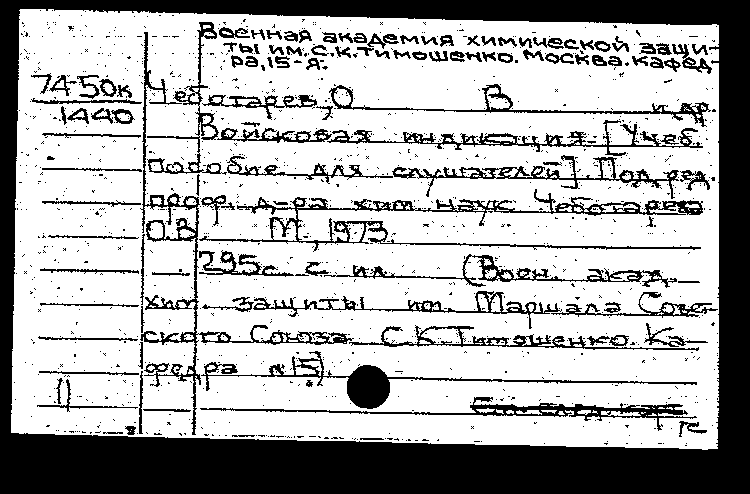 Военная академия химической защи-
ты им. С.К. Тимошенко. Москва. Кафед-
ра, 15-я.
74-50к
1440
Чеботарев, О В и др.
Войсковая индикация. [Учеб.
пособие для слушателей]. Под ред.
проф. д-ра хим наук Чеботарева
О.В. М., 1973.
295с. с ил. (Воен. акад.
хим. защиты им. Маршала Совет-
ского Союза С.К. Тимошенко. Ка-
федра №15).